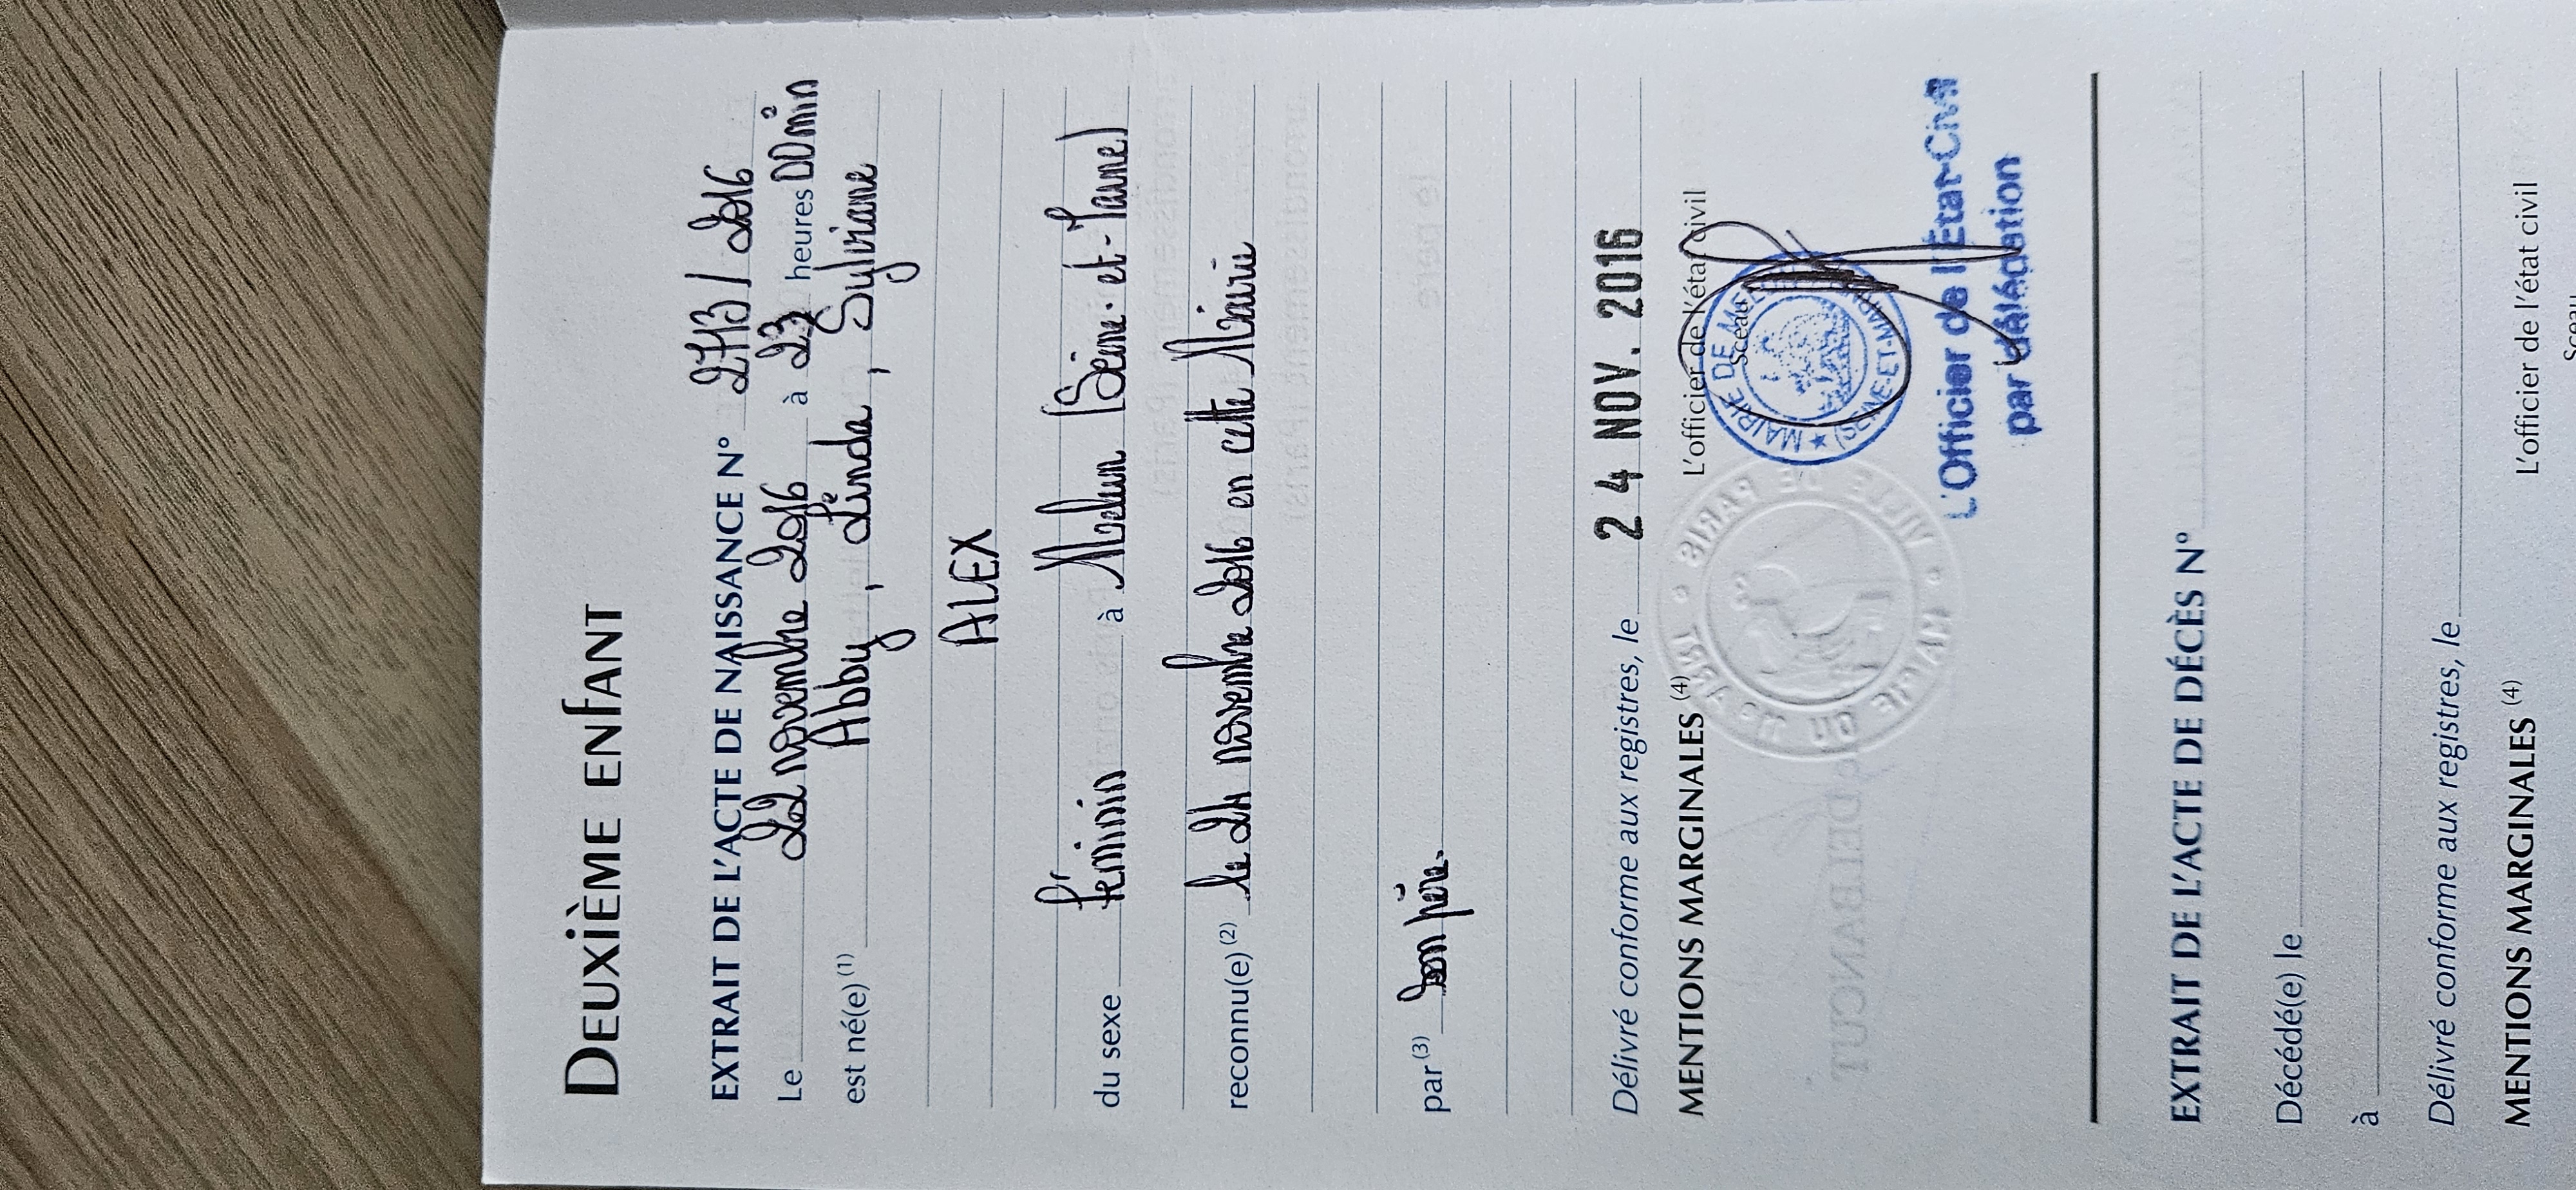 DEUXIÈME ENFANT
EXTRAIT DE L'ACTE DE NAISSANCE N° 2713 / 2016
Le 22 novembre 2016 à 23 heures 00 min 2
est né(e) (1) Abby, Linda, Sylviane
ALEX
du sexe féminin à Melun (Seine-et-Marne)
reconnu(e) (2) le 24 novembre 2016 en cette Mairie
par (3) son père.
Délivré conforme aux registres, le 24 NOV. 2016
MENTIONS MARGINALES (4) L'officier de l'état civil
Sceau
MAIRIE DE MELUN
(SEINE-ET-MARNE)
VILLE DE PARIS
MAIRIE DU ARRT
L'Officier de l'État-Civil
par délégation
EXTRAIT DE L'ACTE DE DÉCÈS N°
Décédé(e) le
à
Délivré conforme aux registres, le
MENTIONS MARGINALES (4) L'officier de l'état civil
Sceau